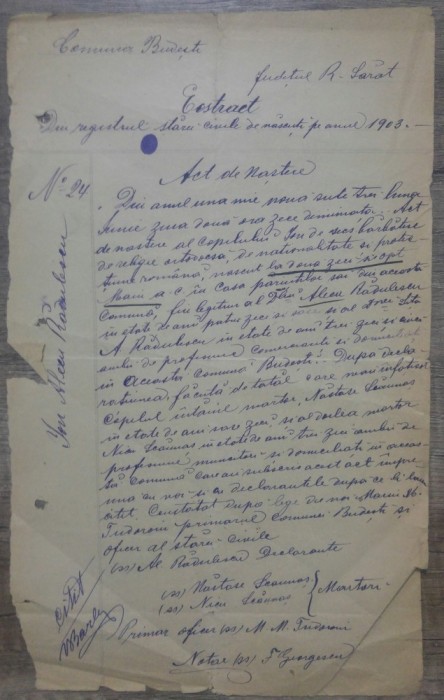 Comuna Budești
Județul R-Sărat
Extract
Din registrul stării civile de născuți pe anul 1903.
Act de naștere
Nº 24
Din anul una mie nouă sute trei luna
Iunie ziua două ora zece dimineața. Act
de naștere al copilului Ion de secs bărbătesc
de religie ortodocsă, de naționalitate și protec
țiune română, născut la două zeci și opt
Maiu a.c în casa părinților săi din această
comună, fiu legitim al D-lui Alecu Rădulescu
în etate de ani patru zeci și și al D-nei
A. Rădulescu în etate de ani trei zeci și
de profesiune comercianți și domiciliați
în această comună Budești. După decla
rațiunea făcută de tatăl care ne-au înfățișat
copilul. Întâiul martor Năstase Scăunaș
în etate de ani zeci și al doilea martor
Nicu Scăunaș în etate de ani trei zeci ambii de
profesiune muncitori și domiciliați în aceas
tă comună care au subscris acest act împre
ună cu noi și cu declarantele după ce li s-au
citit. Constatat după lege de noi Marin M.
Tudoroiu primarul comunei Budești și
oficer al stării civile
(ss) Al Rădulescu Declarante
(ss) Năstase Scăunaș
(ss) Nicu Scăunaș
Martori
Primar oficer (ss) M. M. Tudoroiu
Notar (ss) F Georgescu
Ion Alecu Rădulescu